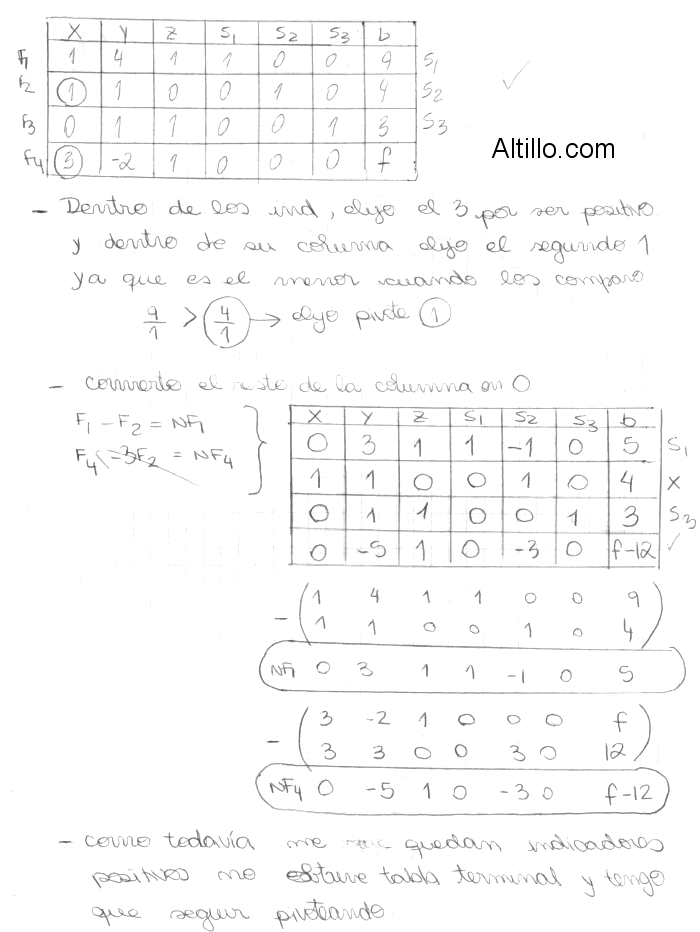 X Y Z S1 S2 S3 b
F1 1 4 1 1 0 0 9 S1
F2 1 1 0 0 1 0 4 S2
F3 0 1 1 0 0 1 3 S3
F4 3 -2 1 0 0 0 f
Altillo.com
- Dentro de los ind, elijo el 3 por ser positivo
y dentro de su columna elijo el segundo 1
ya que es el menor cuando los comparo
9/1 > 4/1 → elijo pivote 1
- convierto el resto de la columna en 0
F1 - F2 = NF1
F4 - 3F2 = NF4
X Y Z S1 S2 S3 b
0 3 1 1 -1 0 5 S1
1 1 0 0 1 0 4 X
0 1 1 0 0 1 3 S3
0 -5 1 0 -3 0 f-12
- ( 1 4 1 1 0 0 9
1 1 0 0 1 0 4 )
NF1 0 3 1 1 -1 0 5
- ( 3 -2 1 0 0 0 f
3 3 0 0 3 0 12 )
NF4 0 -5 1 0 -3 0 f-12
- como todavía me quedan indicadores
positivos no obtuve tabla terminal y tengo
que seguir pivoteando.